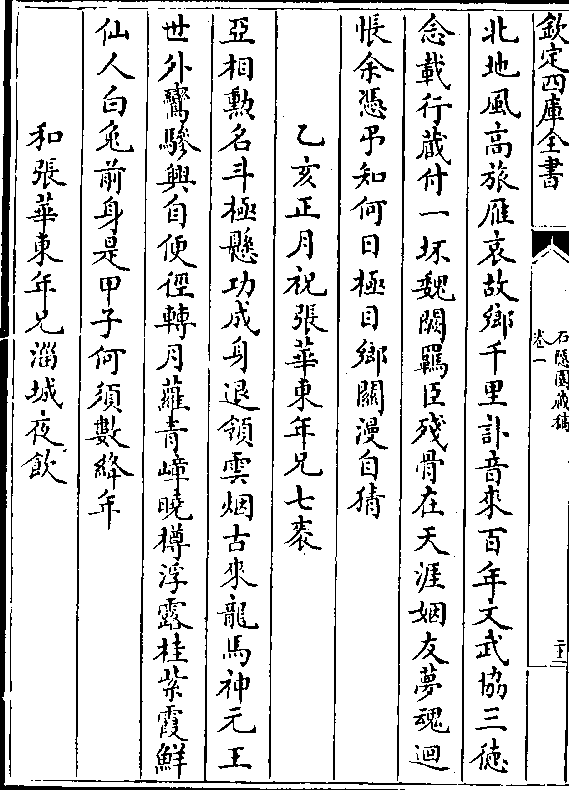 欽定四庫全書
石隱園藏稿
卷一
二十二
北地風高旅雁哀故鄉千里訃音來百年文武協三徳
念載行藏付一坏魏闕羈臣殘骨在天涯姻友夢魂迴
悵余憑弔知何日極目鄉關漫自猜
乙亥正月祝張華東年兄七袠
亞相勲名斗極懸功成身退領雲烟古來龍馬神元王
世外鸞驂興自便徑轉月蘿青嶂曉樽浮露桂紫霞鮮
仙人白兔前身是甲子何須數絳年
和張華東年兄淄城夜飲